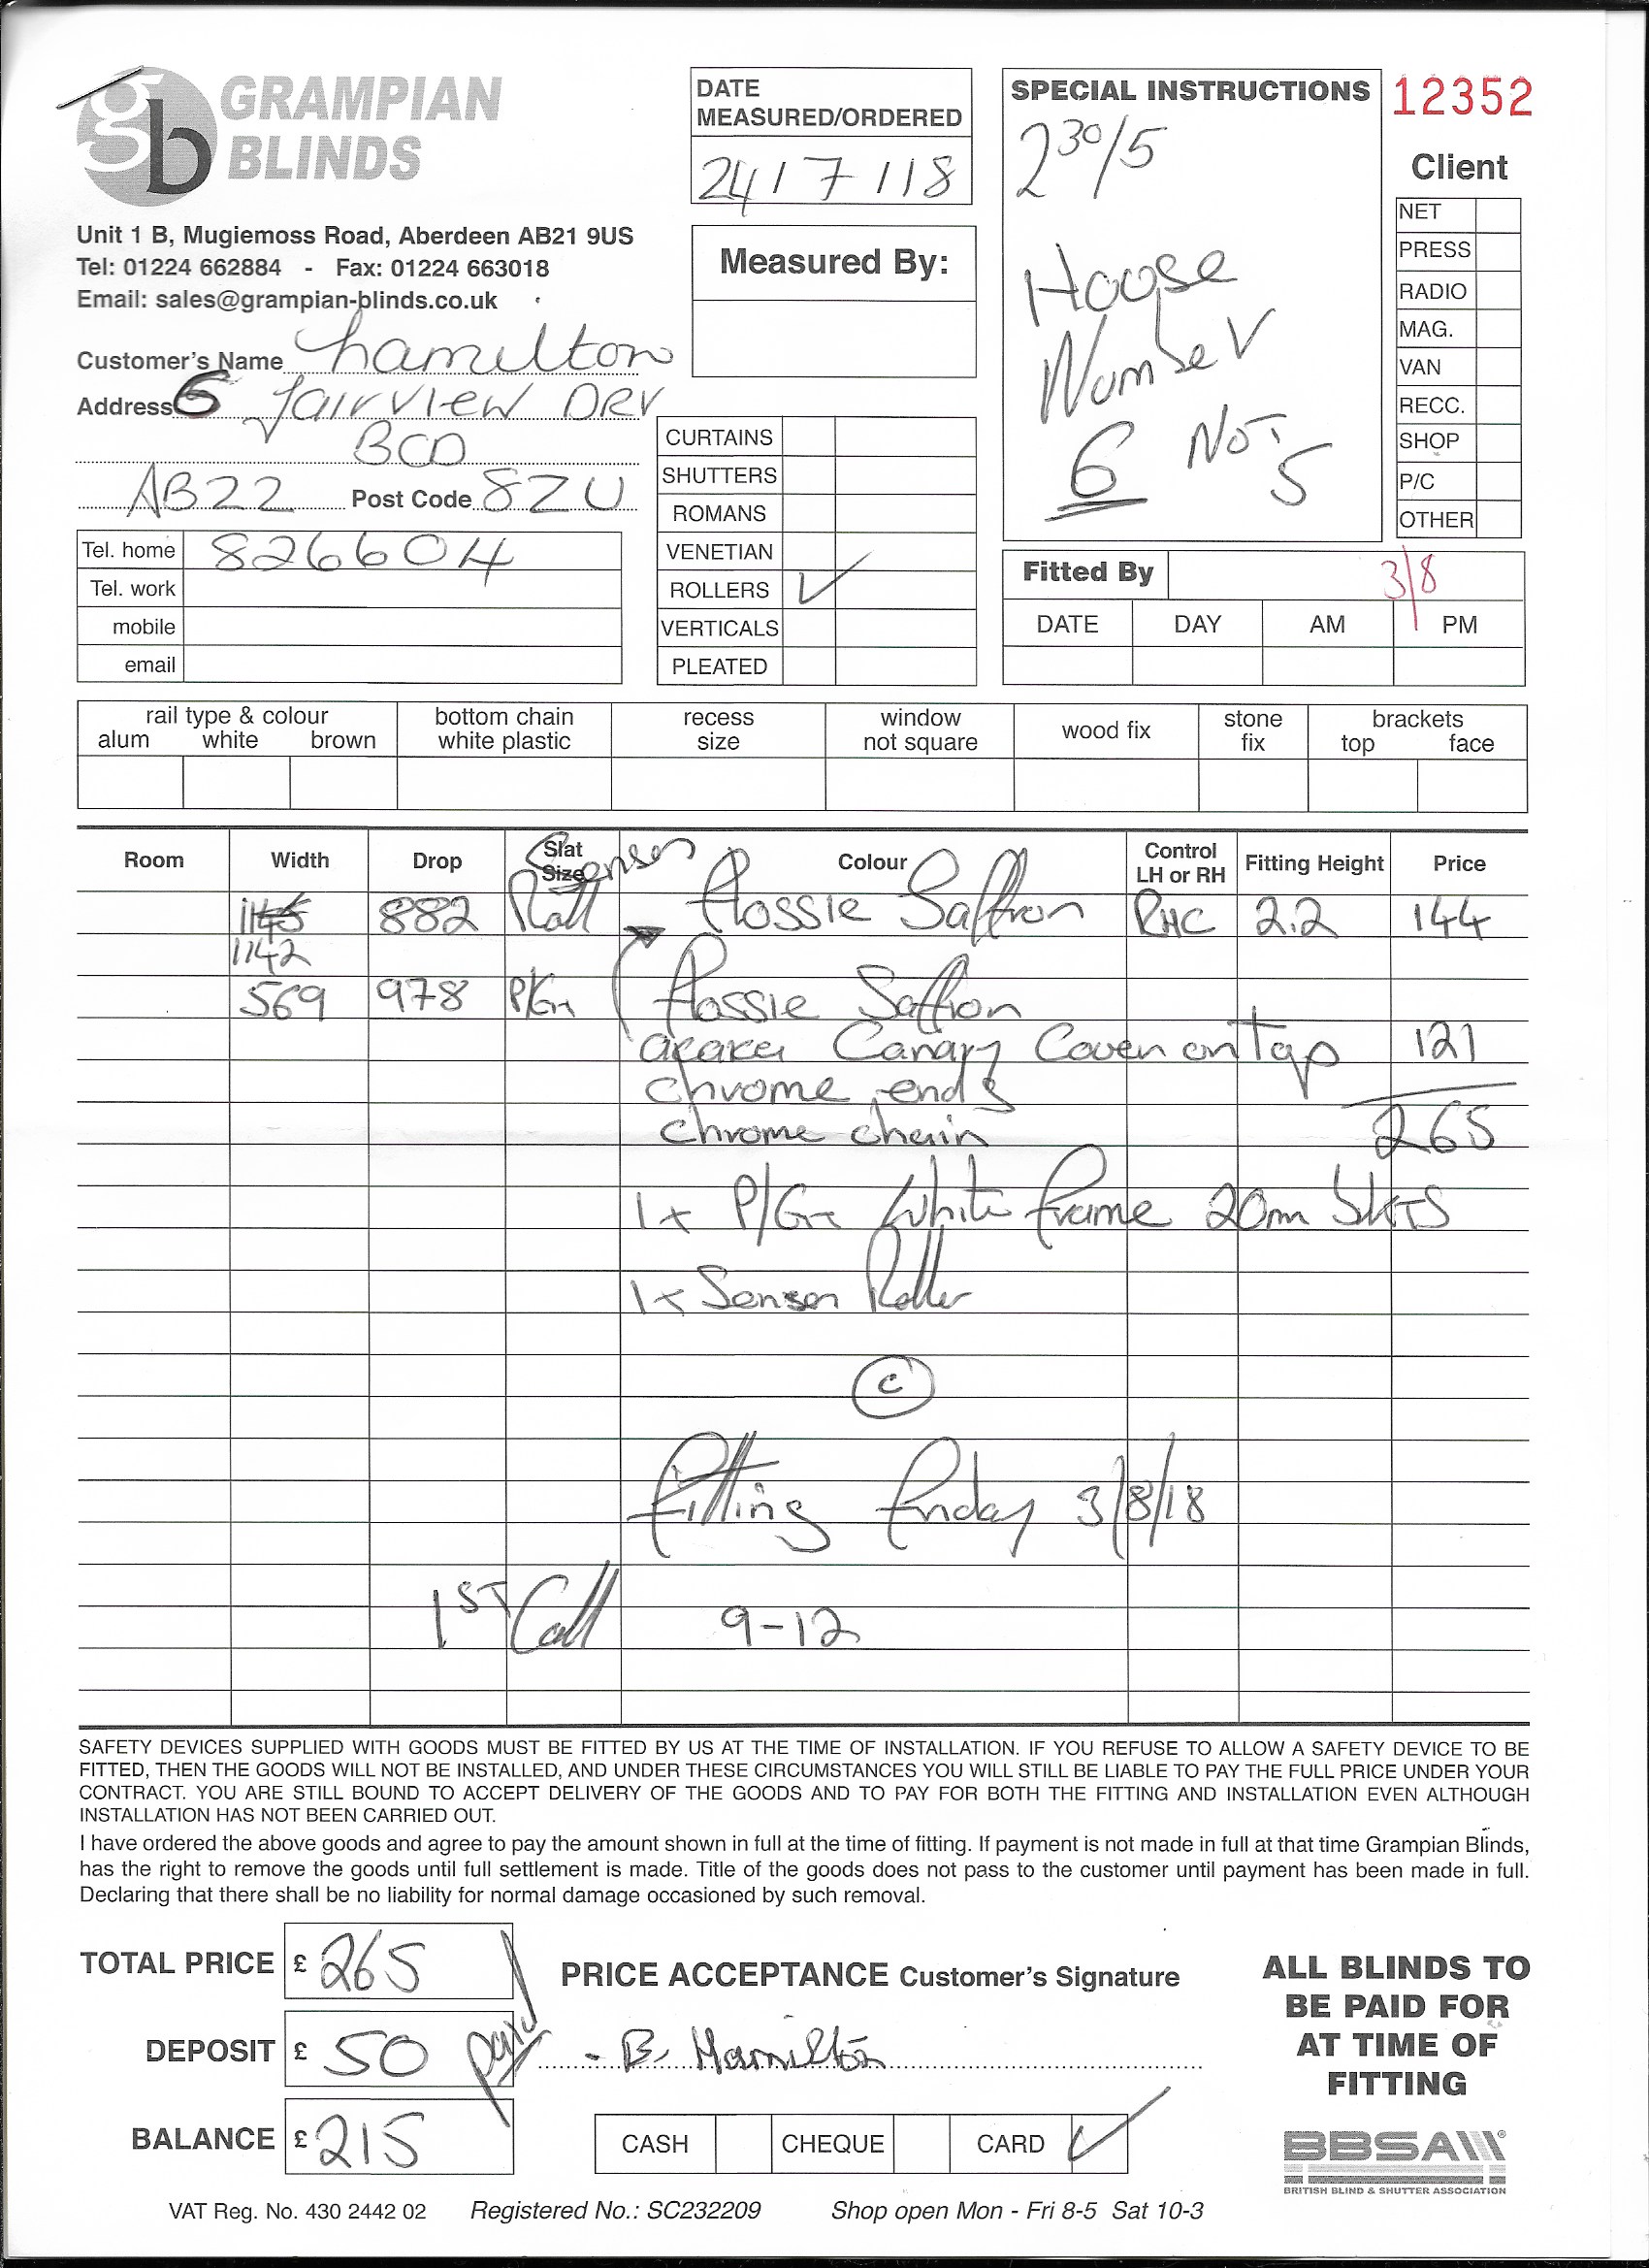 GRAMPIAN
BLINDS
Unit 1 B, Mugiemoss Road, Aberdeen AB21 9US
Tel: 01224 662884 - Fax: 01224 663018
Email: sales@grampian-blinds.co.uk
DATE
MEASURED/ORDERED
24/7/18
Measured By:
SPECIAL INSTRUCTIONS
2 30/5
House
Number
6 NOT
5
12352
Client
NET
PRESS
RADIO
MAG.
VAN
RECC.
SHOP
P/C
OTHER
Customer's Name hamilton
Address 6 fairview DRV
BCD
AB22 Post Code 8ZU
Tel. home 826604
Tel. work
mobile
email
CURTAINS
SHUTTERS
ROMANS
VENETIAN
ROLLERS ✓
VERTICALS
PLEATED
Fitted By 3/8
DATE DAY AM PM
rail type & colour
alum white brown
bottom chain
white plastic
recess
size
window
not square
wood fix
stone
fix
brackets
top face
Room Width Drop Slat Size Colour Control LH or RH Fitting Height Price
Senses
882 Roll Flossie Saffron RHC 2.2 144
1142
569 978 P/Gn Flossie Saffron
Canary on Top 121
chrome ends
chrome chain 265
1x P/Gn White frame 20m
1x Senses Roller
C
fitting friday 3/8/18
1ST Call 9-12
SAFETY DEVICES SUPPLIED WITH GOODS MUST BE FITTED BY US AT THE TIME OF INSTALLATION. IF YOU REFUSE TO ALLOW A SAFETY DEVICE TO BE
FITTED, THEN THE GOODS WILL NOT BE INSTALLED, AND UNDER THESE CIRCUMSTANCES YOU WILL STILL BE LIABLE TO PAY THE FULL PRICE UNDER YOUR
CONTRACT. YOU ARE STILL BOUND TO ACCEPT DELIVERY OF THE GOODS AND TO PAY FOR BOTH THE FITTING AND INSTALLATION EVEN ALTHOUGH
INSTALLATION HAS NOT BEEN CARRIED OUT.
I have ordered the above goods and agree to pay the amount shown in full at the time of fitting. If payment is not made in full at that time Grampian Blinds,
has the right to remove the goods until full settlement is made. Title of the goods does not pass to the customer until payment has been made in full.
Declaring that there shall be no liability for normal damage occasioned by such removal.
TOTAL PRICE £ 265
DEPOSIT £ 50 paid
BALANCE £ 215
PRICE ACCEPTANCE Customer's Signature
B. Hamilton
CASH CHEQUE CARD ✓
ALL BLINDS TO
BE PAID FOR
AT TIME OF
FITTING
BBSA
BRITISH BLIND & SHUTTER ASSOCIATION
VAT Reg. No. 430 2442 02 Registered No.: SC232209 Shop open Mon - Fri 8-5 Sat 10-3